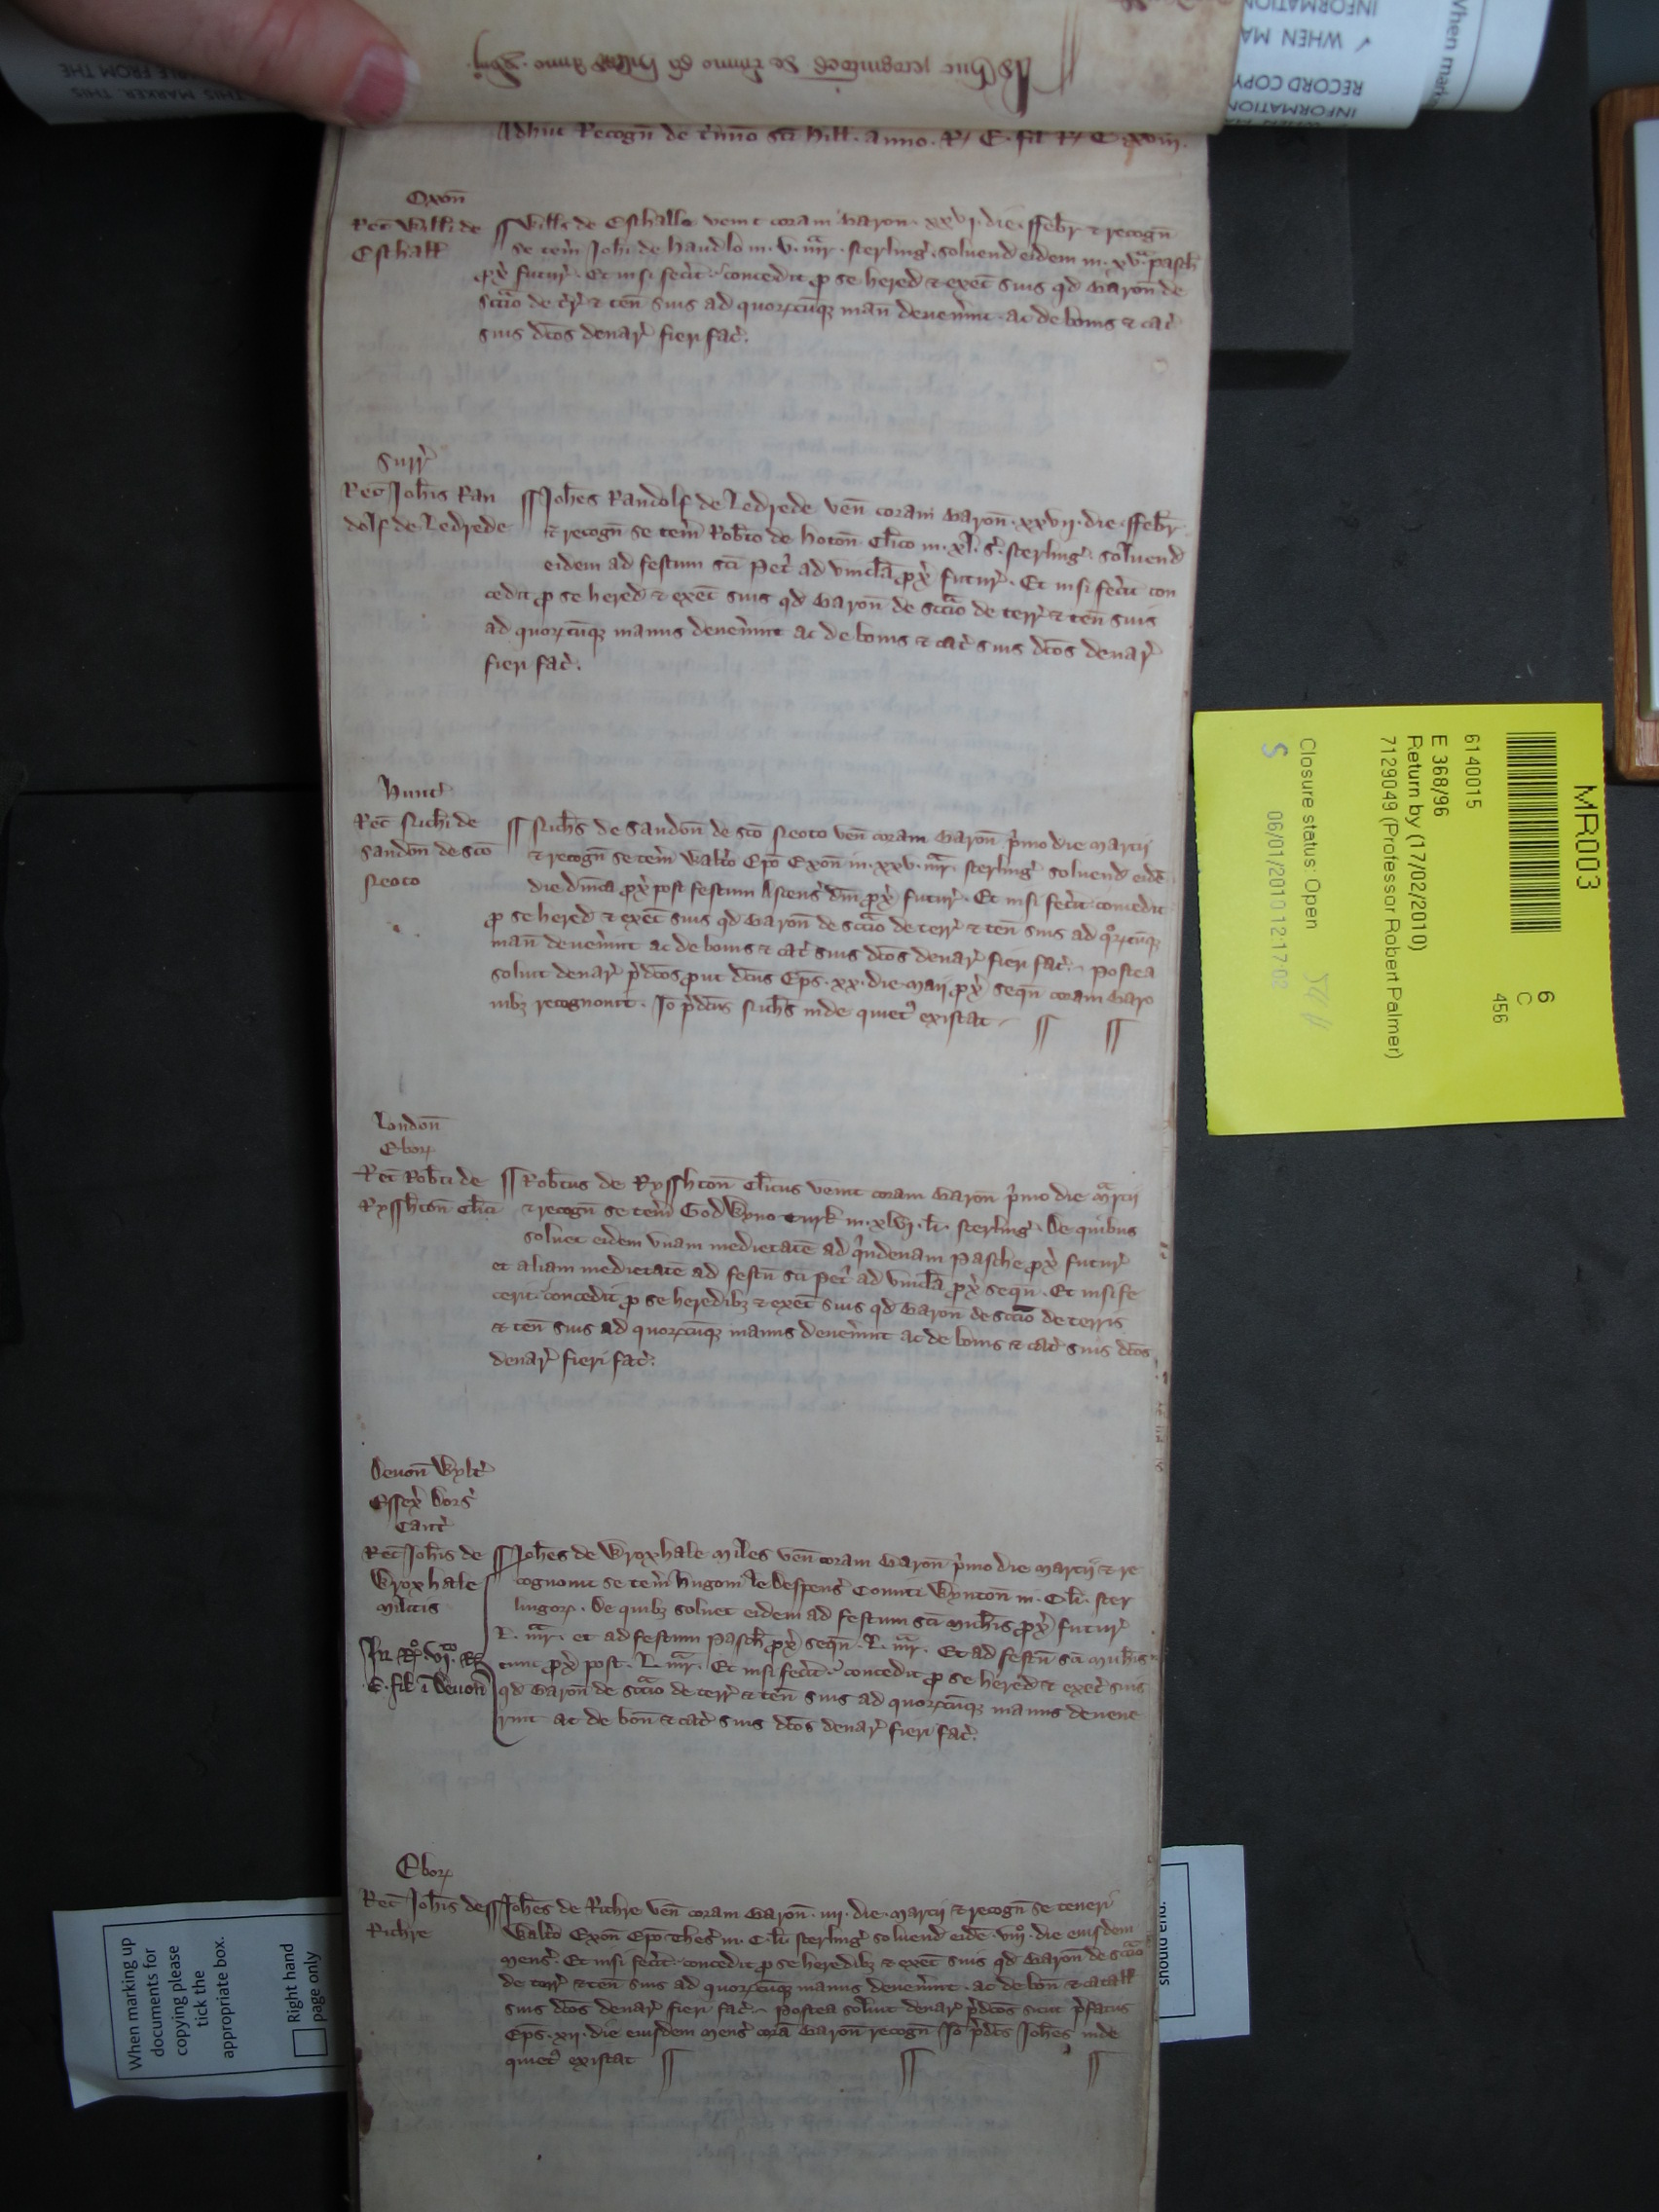 Adhuc Recogn̄ de t̄mino sc̄i Hill. anno. R. E. fil R. E. xviij.
Oxon̄
Rec̄ Willi de
Esthall
Wills de Esthalle venit coram Baron. xxvj. die. ffebr̄ & recogn̄
se ten̄i Joh̄i de Haudlo in. v. mr̄. sterling̾. soluend eidem in. xv.a pasch̄
px̄ futur̾. Et nisi fec̄it concedit p se hered & exec̄ suis qd Baron̄ de
sc̄c̄io de t̄r̄ & ten̄ suis ad quorūcūq man̄ deven̄int. ac de bonis & cat̾
suis dc̄os denar̾ fieri fac̾.
Surr̾
Rec̄ Joh̄is Ran
dolf de Ledrede
Joh̄es Randolf de Ledrede ven̄ coram Baron̄. xxvij. die. ffebr̄
& recogn̄ se ten̄i Rob̄to de Hoton̄ Cl̄ico in. xl. s̾. sterling̾. soluend
eidem ad festum sc̄i Pet̾ ad vincl̄a px̄ futur̾. Et nisi fec̄it con
cedit p se hered & exec̄ suis qd Baron̄ de sc̄c̄io de terr̾ & ten̄ suis
ad quorūcūq manus deven̄int ac de bonis & cat̾ suis dc̄os denar̾
fieri fac̾.
Hunt̾
Rec̄ Nich̄i de
Sandon̄ de sc̄o
Neoto
Nich̄s de Sandon̄ de sc̄o Neoto ven̄ coram Baron̄ p̄mo die marcij
& recogn̄ se ten̄i Walt̄o Ep̄o Exon̄ in. xxv. mr̄. sterling̾ soluend eidē
die dn̄ica px̄ post festum Ascens̾ dn̄i px̄ futur̾. Et nisi fec̄it concedit
p se hered & exec̄ suis qd Baron̄ de sc̄c̄io de terr̾ & ten̄ suis ad qorūcūq
man̄ deven̄int ac de bonis & cat̾ suis dc̄os denar̾ fieri fac̾. Postea
soluit denar̾ p̄dc̄os put dc̄us Ep̄s. xx. die. maij. px̄ sequn̄ coram Baro
nibȝ recognouit. Io p̄dc̄us Nich̄s inde quiet̾ existat
London̄
Ebor
Rec̄ Rob̄ti de
Ryssh̄ton̄ Cl̄ici
Rob̄tus de Rysshton̄ Cl̄icus venit coram Baron̄ p̄mo die m̄rcij
& recogn̄ se ten̄i Godwyno Turk in. xlvj. li̅. sterling̾. De quibus
soluet eidem vnam medietatē ad qi̅ndenam Pasche px̄ futur̾
et aliam medietatē ad festū sc̄i Pet̾ ad vincl̄a px̄ sequn̄. Et nisi fe
cerit. concedit p se heredibȝ & exec̄ suis qd Baron̄ de sc̄c̄io de terris
& ten̄ suis ad quorūcūq manus deven̄int ac de bonis & cat̾ suis dc̄os
denar̾ fieri fac̾.
Deuon̄ Wylt̾
Essex̾ Dors̾
Cant̾
Rec̄ Joh̄is de
Wroxhale
militis
Joh̄es de Wroxhale miles ven̄ coram Baron̄ p̄mo die marcij & re
cognouit se ten̄i Hugoni le Despens̾ Comiti Wynton̄ in. C. li̅. ster
lingor. De quibȝ soluet eidem ad festum sc̄i Mich̄is px̄ futur̾
L. mr̄. et ad festum Pasch̄ px̄ sequn̄. L. mr̄. Et ad festū sc̄i Mich̄is
tunc px̄ post. L. mr̄. Et nisi fec̄it. concedit p se hered & exec̄ suis
qd Baron̄ de sc̄c̄io de terr̾ & ten̄ suis ad quorūcūq manus devene
rint ac de bon̄ & cat̾ suis dc̄os denar̾ fieri fac̾.
In Ro vjto R
E. fil̄ i̅ Deuon̄
Ebor
Rec̄ Joh̄is de
Richre
Joh̄es de Richre ven̄ coram Baron̄. iiij. die. marcij & recogn̄ se teneri
Walt̄o Exon̄ Ep̄o Thes̾ in. C. li̅. sterling̾ soluend eidē. viijo. die eiusdem
mens̾. Et nisi fec̄it. concedit p se heredibȝ & exec̄ suis qd Baron̄ de sc̄c̄io
de terr̾ & ten̄ suis ad quorūcūq manus deven̄int. ac de bon̄ & catall
suis dc̄os denar̾ fieri fac̾. Postea soluit denar̾ p̄dc̄os sicut p̄fatus
Ep̄s. xij. die eiusdem mens̾ corā Baron̄ recogn̄ Io p̄dc̄s Joh̄es inde
quiet̾ existat
MR003
6
C
456
6140015
E 368/96
Return by (17/02/2010)
7129049 (Professor Robert Palmer)
Closure status: Open
S
06/01/2010 12:17:02
When marking up
documents for
copying please
tick the
appropriate box.
Right hand
page only
should end.
When mark
✓ WHEN MA
INFORMATION
RECORD COPY